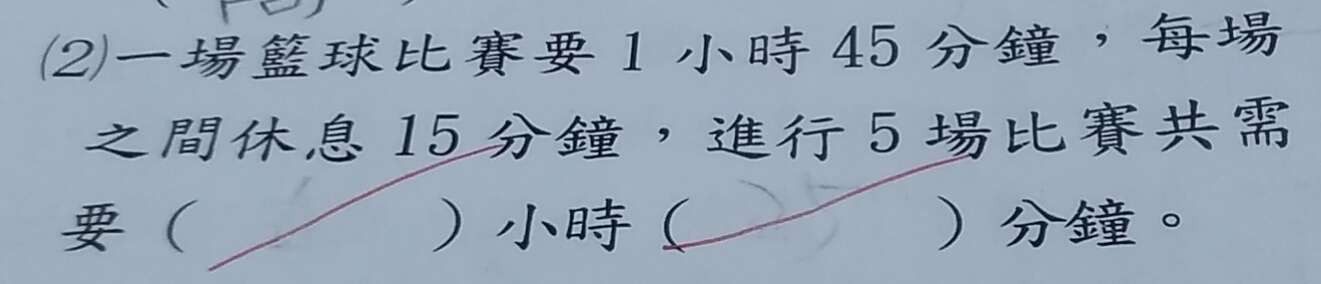 (2)一場籃球比賽要 1 小時 45 分鐘，每場
之間休息 15 分鐘，進行 5 場比賽共需
要（　　　　）小時（　　　　）分鐘。